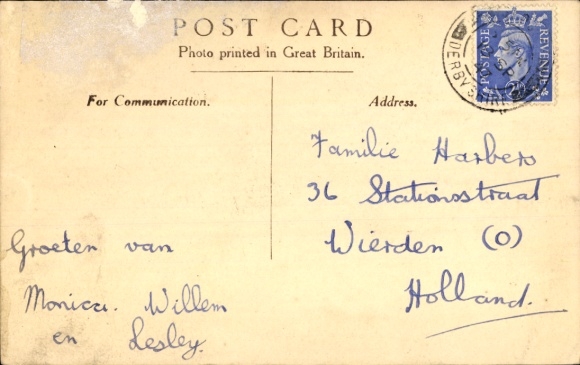 POST CARD
Photo printed in Great Britain.
For Communication.
Address.
POSTAGE
REVENUE
DERBYSHIRE
Familie Harbers
36 Stationsstraat
Wierden (O)
Holland.
Groeten van
Monica. Willem
en Lesley.